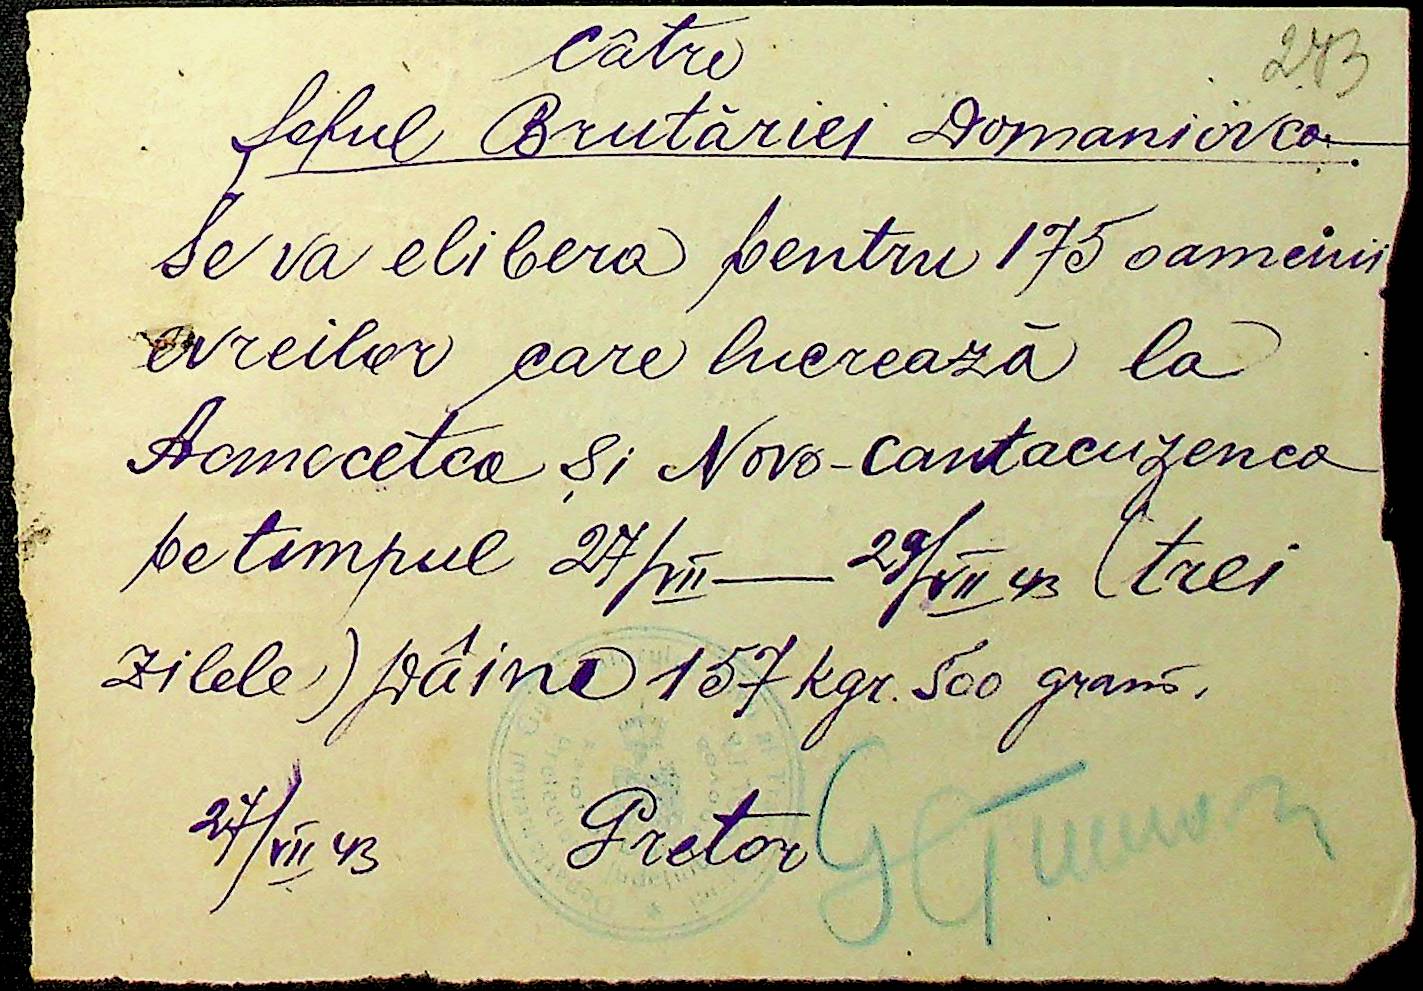 273
Către
Șeful Brutăriei Domaniovca
Se va elibera pentru 175 oameinii
evreilor care lucrează la
Acmecetca și Novo-Cantacuzenca
pe timpul 27/VII — 29/VII 43 (trei
zilele) pâine 157 kgr. 500 gram.
27/VII 43 Pretor